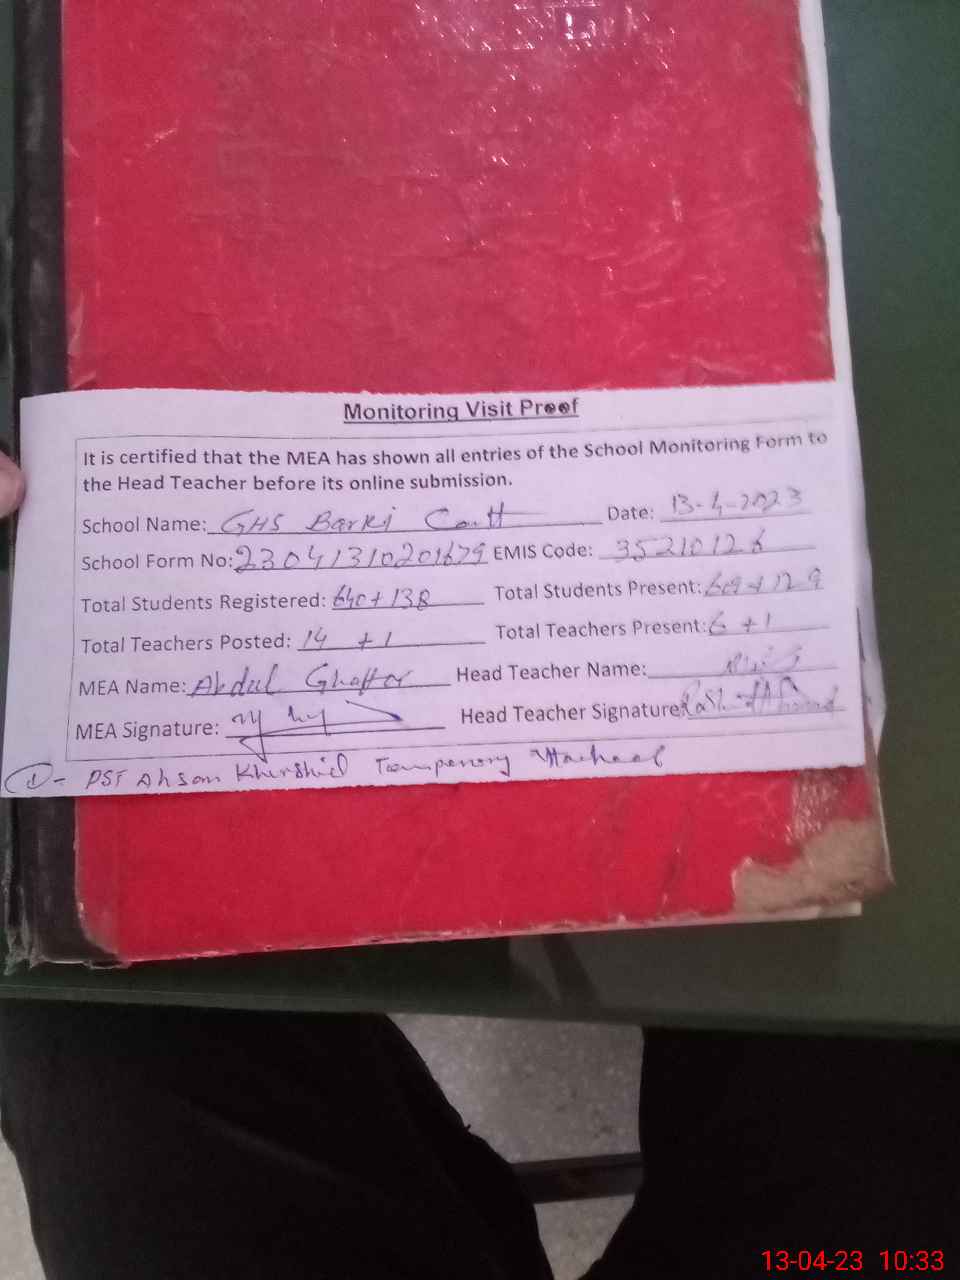 Monitoring Visit Proof
It is certified that the MEA has shown all entries of the School Monitoring Form to
the Head Teacher before its online submission.
School Name: GHS Barki Cantt Date: 13-4-2023
School Form No: 23041310201679 EMIS Code: 35210126
Total Students Registered: 640+138 Total Students Present: 609+129
Total Teachers Posted: 14 +1 Total Teachers Present: 6 +1
MEA Name: Abdul Ghaffor Head Teacher Name:
MEA Signature: Head Teacher Signature
① - PST Ahsan Khurshid Temperory Attached
13-04-23 10:33